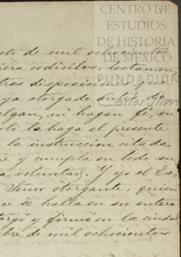 CENTRO DE
ESTUDIOS
DE HISTORIA
DE MÉXICO
FUNDACIÓN
Carlos Slim
de mil ochocientos
codicilos, testamen
disposicion
ya otorgado antes de
valgan, ni hagan fé, en
lo haga el presente
la instruccion citada
y cumpla en todo su
voluntad. Y yo el Es
otorgante, quien
se halla en su entero
y firmó en la ciudad
bre de mil ochocientos